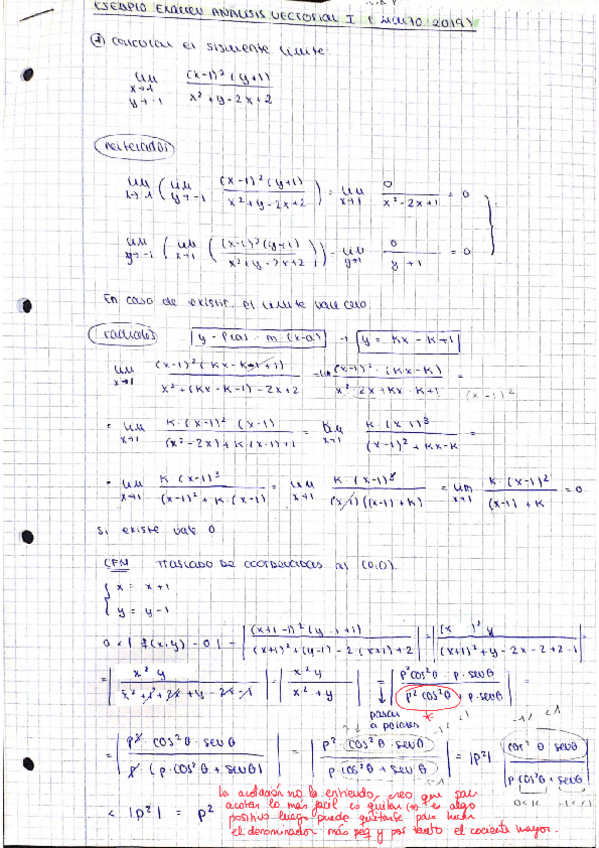 EJEMPLO EXAMEN ANÁLISIS VECTORIAL I (MARZO 2019)
① Calcular el siguiente límite.
lim x→1 y→-1 (x-1)² (y+1) / x² + y - 2x + 2
Reiterados
lim x→1 ( lim y→-1 (x-1)² (y+1) / x² + y - 2x + 2 ) = lim x→1 0 / x² - 2x + 1 = 0
lim y→-1 ( lim x→1 ( (x-1)² (y+1) / x² + y - 2x + 2 ) = lim y→1 0 / y + 1 = 0
En caso de existir, el límite vale cero.
radiales y - = m (x-a) → y = Kx - K + 1
lim x→1 (x-1)² (Kx - K - 1 + 1) / x² + (Kx - K - 1) - 2x + 2 = lim (x-1)² · (Kx - K) / x² - 2x + Kx - K + 1 =
(x-1)²
= lim x→1 K · (x-1)² (x-1) / (x² - 2x) + K · (x-1) + 1 = lim x→1 K · (x-1)³ / (x-1)² + Kx - K =
= lim x→1 K (x-1)³ / (x-1)² + K · (x-1) = lim x→1 K · (x-1)³ / (x-1) ((x-1) + K) = lim x→1 K · (x-1)² / (x-1) + K = 0
Si existe vale 0
CFM Traslado de coordenadas al (0,0).
x = x + 1
y = y - 1
0 < | f(x,y) - 0 | = | (x+1-1)² (y-1+1) / (x+1)² + (y-1) - 2 (x+1) + 2 | = | (x )² y / (x+1)² + y - 2x - 2 + 2 - 1 | =
= | x² y / x² + 1 + 2x + y - 2x - 1 | = | x² y / x² + y | = | ρ² cos² θ · ρ · sen θ / ρ² cos² θ + ρ · sen θ | =
pasar a polares
*
= | ρ³ cos² θ · sen θ / ρ (ρ · cos² θ + sen θ) | = | ρ² · cos² θ · sen θ / ρ · cos² θ + sen θ | = |ρ²| | cos² θ sen θ / ρ cos² θ + sen θ |
< |ρ²| = ρ²
La acotación no la entiendo, creo que para
acotar lo más fácil es quitar (*) es algo
positivo luego puede quitarse para hacer
el denominador más peq y por tanto el cociente mayor.